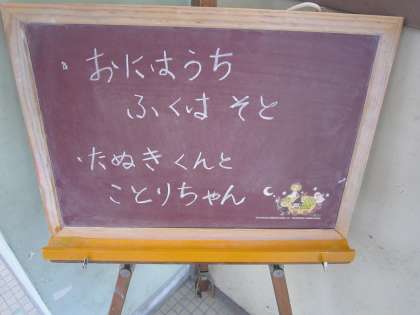 ・おにはうち
ふくは そと
・たぬき くんと
ことりちゃん